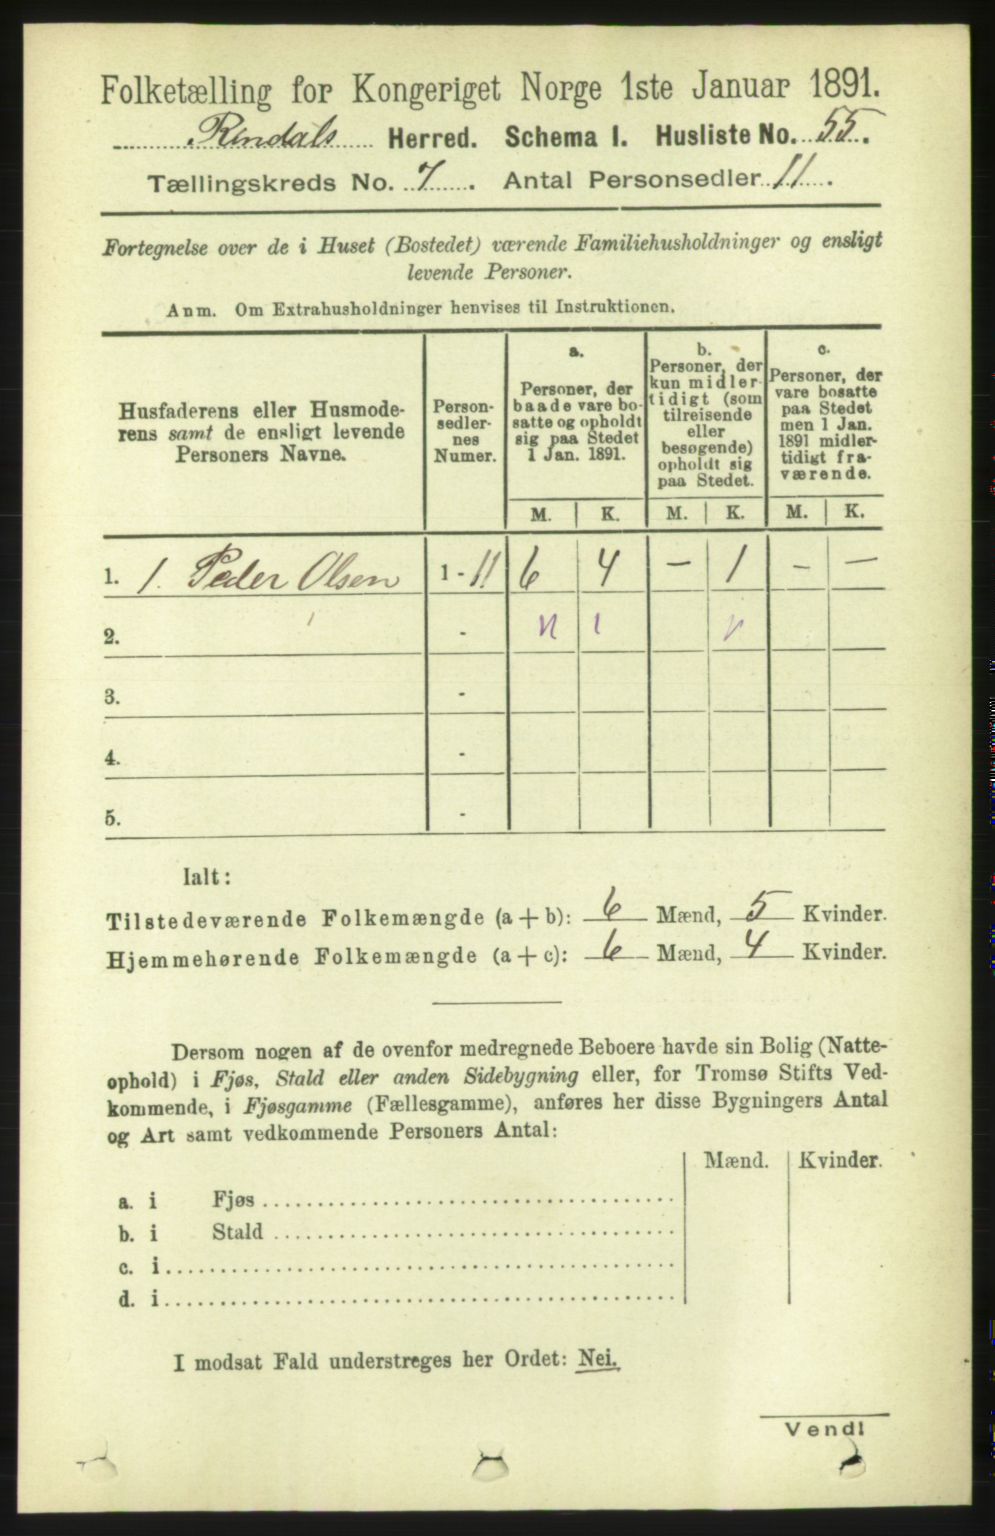 Folketælling for Kongeriget Norge 1ste Januar 1891.
Rindals Herred. Schema I. Husliste No. 55.
Tællingskreds No. 7. Antal Personsedler 11.
Fortegnelse over de i Huset (Bostedet) værende Familiehusholdninger og ensligt
levende Personer.
Anm. Om Extrahusholdninger henvises til Instruktionen.
Husfaderens eller Husmode-
rens samt de ensligt levende
Personers Navne.
Person-
sedler-
nes
Numer.
a.
Personer, der
baade vare bo-
satte og opholdt
sig paa Stedet
1 Jan. 1891.
b.
Personer, der
kun midler-
tidigt (som
tilreisende
eller
besøgende)
opholdt sig
paa Stedet.
c.
Personer, der
vare bosatte
paa Stedet
men 1 Jan.
1891 midler-
tidigt fra-
værende.
M. K. M. K. M. K.
1. 1. Peder Olsen 1 - 11 6 4 - 1 - -
2. -
3. -
4. -
5. -
Ialt:
Tilstedeværende Folkemængde (a + b): 6 Mænd, 5 Kvinder.
Hjemmehørende Folkemængde (a + c): 6 Mænd, 4 Kvinder.
Dersom nogen af de ovenfor medregnede Beboere havde sin Bolig (Natte-
ophold) i Fjøs, Stald eller anden Sidebygning eller, for Tromsø Stifts Ved-
kommende, i Fjøsgamme (Fællesgamme), anføres her disse Bygningers Antal
og Art samt vedkommende Personers Antal:
Mænd. Kvinder.
a. i Fjøs
b. i Stald
c. i
d. i
I modsat Fald understreges her Ordet: Nei.
Vend!